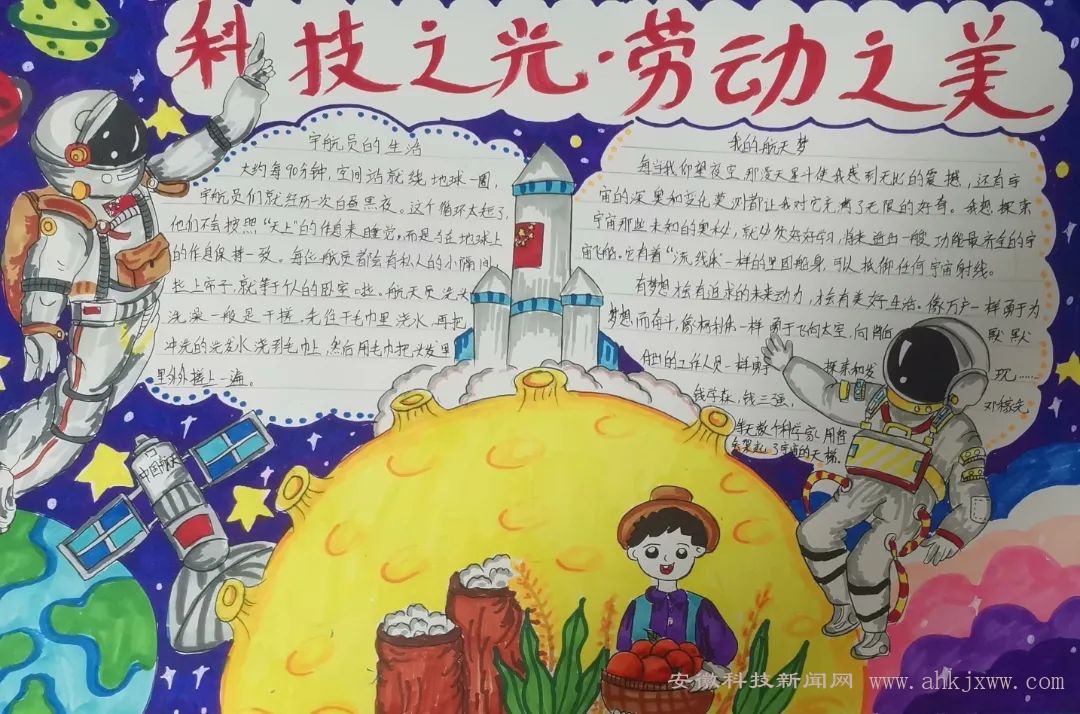 科技之光·劳动之美
宇航员的生活
大约每90分钟,空间站就绕地球一圈,
宇航员们就经历一次白昼黑夜。这个循环太短了,
他们不会按照“天上”的作息来睡觉,而是与在地球上
的作息保持一致。每位航员都会有私人的小隔间,
拉上帘子,就等于人的卧室啦。航天员洗头
洗澡一般是干搓,先往干毛巾里浇水,再把
冲洗的洗发水浇到毛巾上,然后用毛巾把头发里
里外外搓上一遍。
我的航天梦
每当我仰望夜空,那漫天星斗使我感到无比的震撼,还有宇
宙的深奥和变化莫测都让我对它充满了无限的好奇。我想探索
宇宙那些未知的奥秘,就必须好好学习,将来造出一艘功能最齐全的宇
宙飞船。它有着“流线体”一样的里团船身,可以抵御任何宇宙射线。
有梦想才会有追求的未来动力,才会有美好生活。像万户一样勇于为
梦想而奋斗,像杨利伟一样勇于飞向太空,向 默默
的工作人员一样勇于 探索和发 现……
钱学森,钱三强, 邓稼先
等无数个科学家,用智
架起了宇宙的天梯。
中国航天
安徽科技新闻网 www.ahkjxww.com